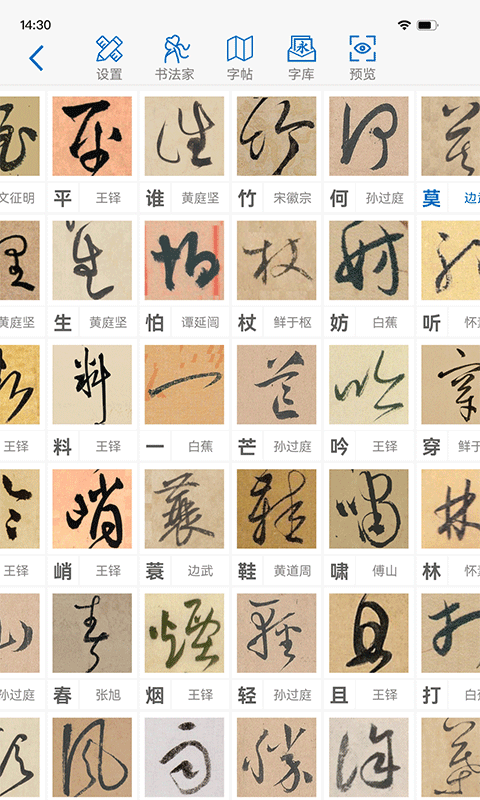 14:30
设置 书法家 字帖 字库 预览
文征明 平 王铎 谁 黄庭坚 竹 宋徽宗 何 孙过庭 莫 边武
黄庭坚 生 黄庭坚 怕 谭延闿 杖 鲜于枢 妨 白蕉 听 怀
王铎 料 王铎 一 白蕉 芒 孙过庭 吟 王铎 穿 鲜于
王铎 峭 王铎 蓑 边武 鞋 黄道周 啸 傅山 林 怀
孙过庭 春 张旭 烟 王铎 轻 孙过庭 且 王铎 打 白蕉